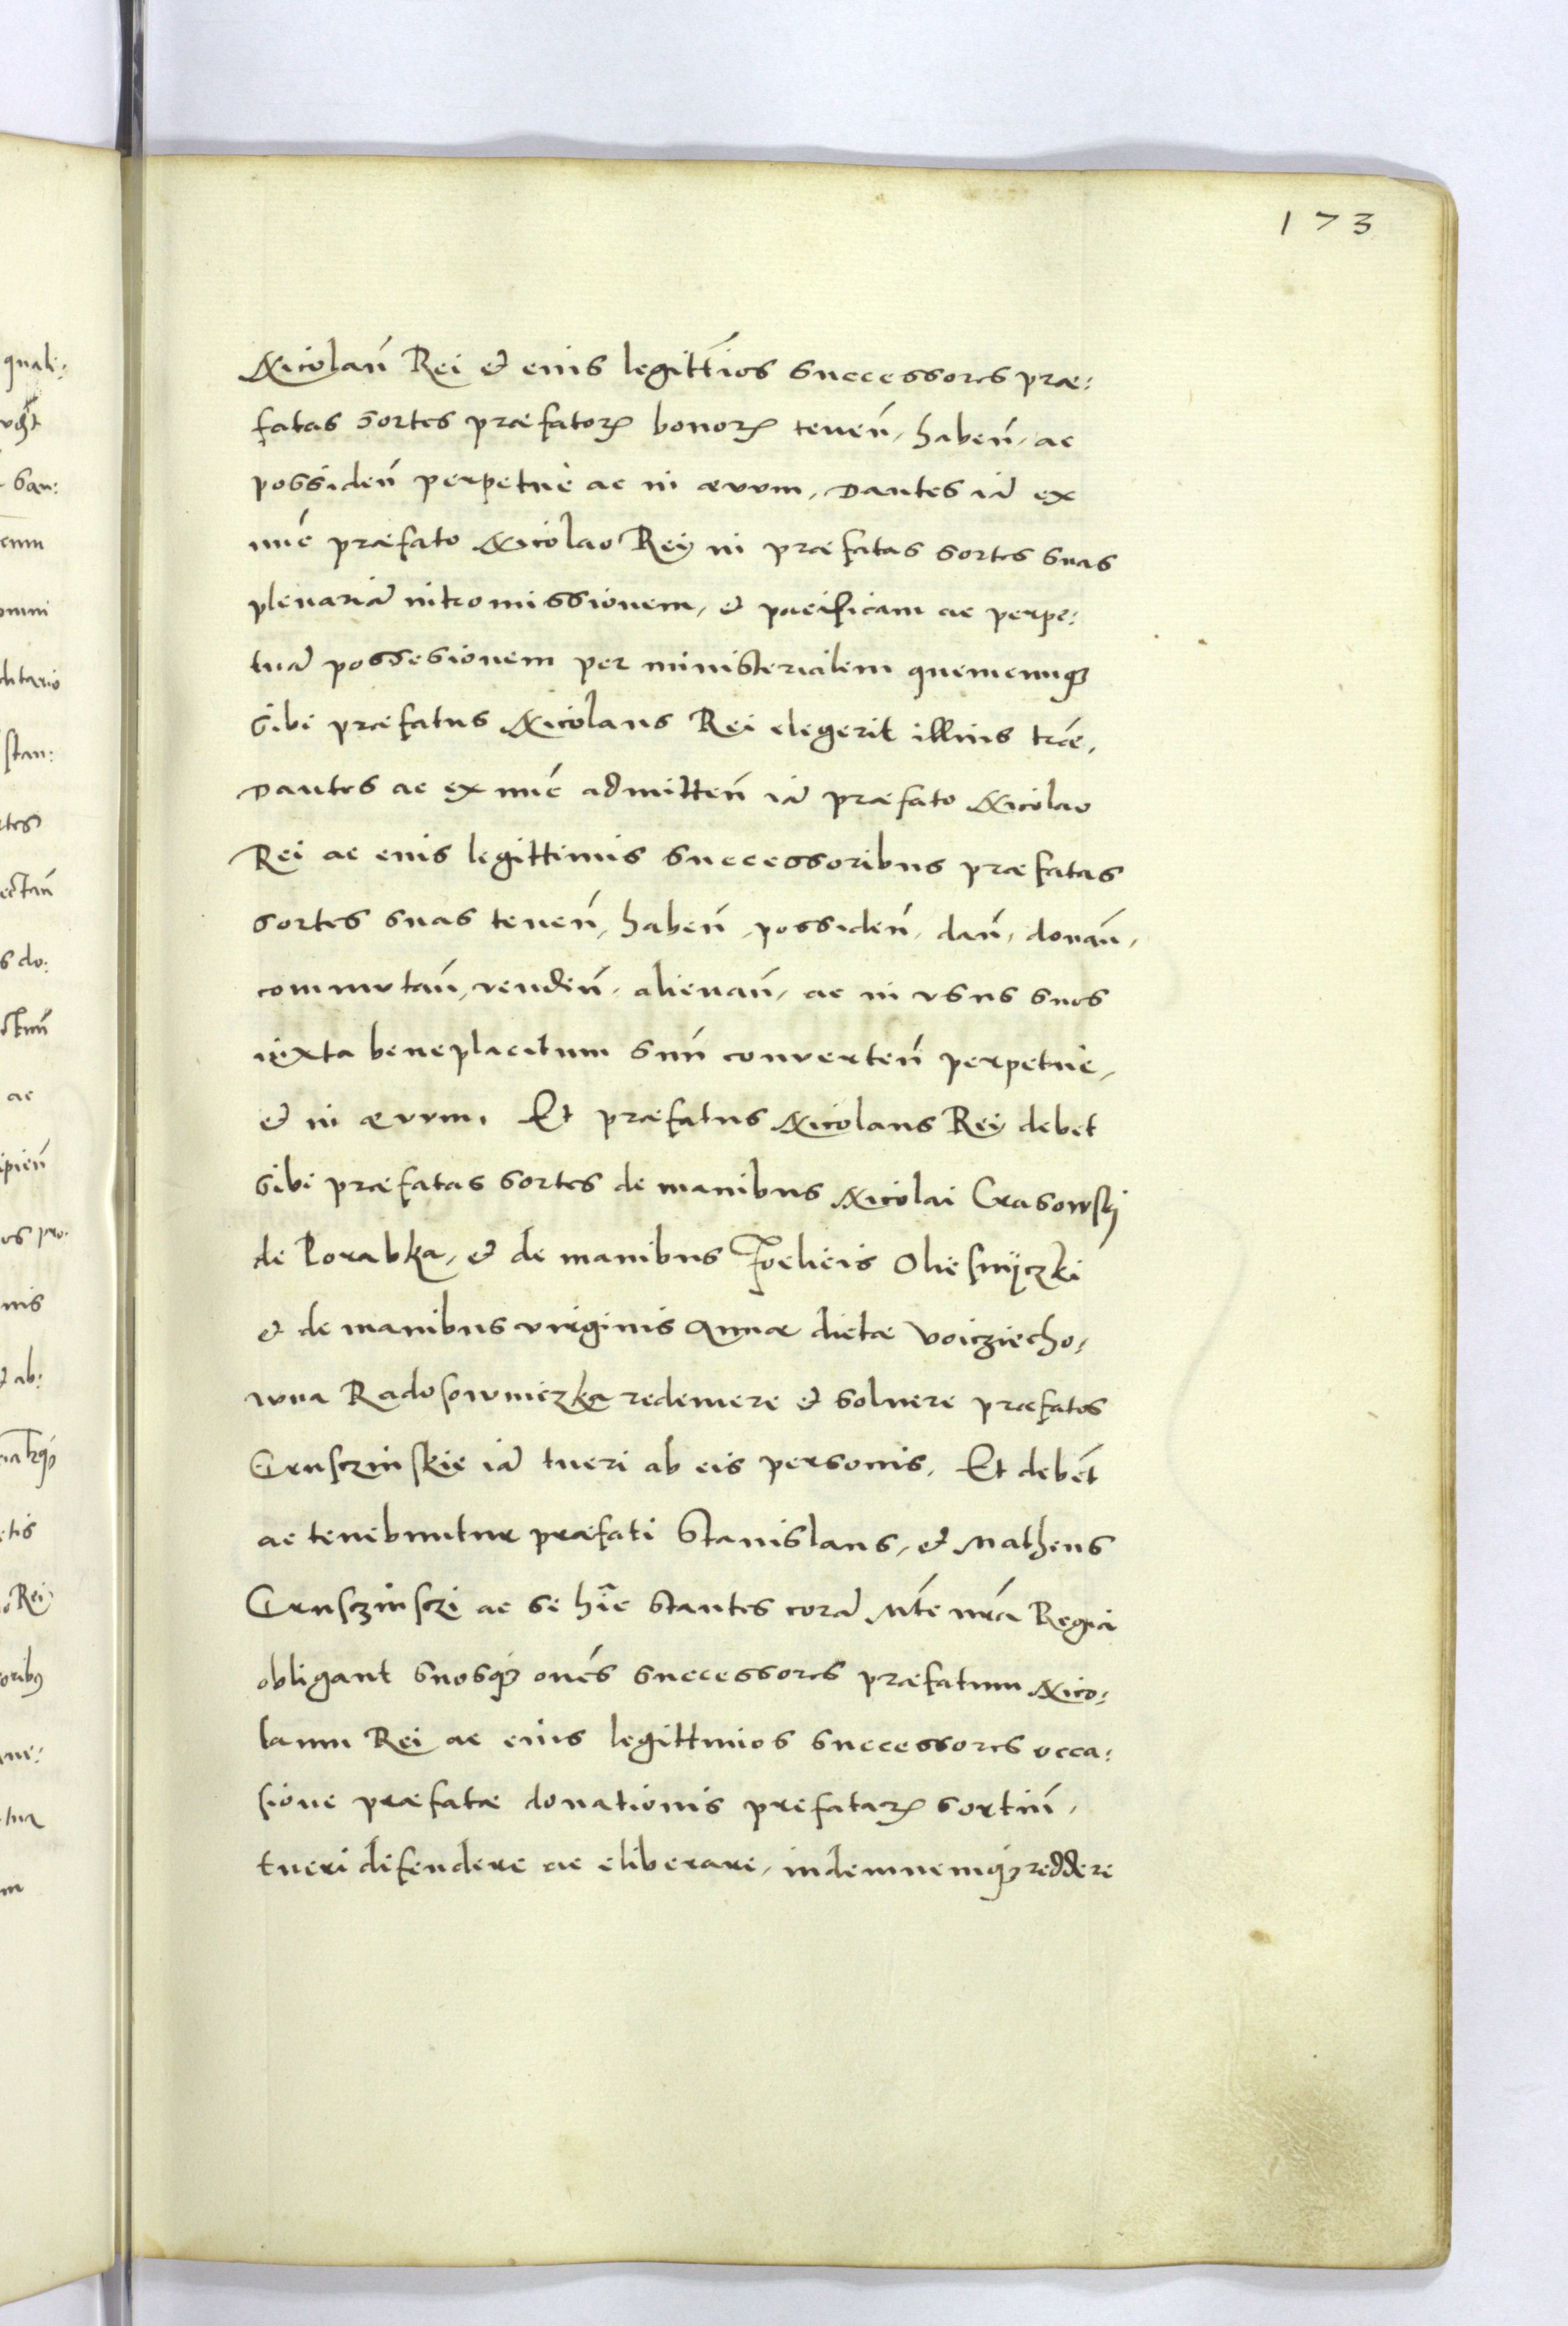 173
Nicolaū Rei et eius legittīos successores præ:
fatas sortes præfatorꝝ bonorꝝ tenen̄, haben̄, ac
possiden̄ perpetuè ac in ævum, Dantes iā ex
nūc præfato Nicolao Reÿ in præfatas sortes suas
plenariā intromissionem, et pacificam ac perpe:
tuā possesionem per ministerialem quemcunqꝫ
sibi præfatus Nicolaus Rei elegerit illius træ,
Dantes ac ex nūc admitten̄ iā præfato Nicolao
Rei ac eius legittimis successoribus præfatas
sortes suas tenen̄, haben̄, possiden̄, dan̄, donan̄,
commutan̄, venden̄, alienan̄, ac in vsus suos
iuxta beneplacitum suū converten̄ perpetuè,
et in ævum, Et præfatus Nicolaus Reÿ debet
sibi præfatas sortes de manibus Nicolai Crasowskj
de Porabka, et de manibus Foelicis Oliesnÿczki
et de manibus virginis Annæ dictæ Voicziecho,
wna Radosowniczka redemere et soluere præfatos
Crusczinskie iā tueri ab eis personis, Et debēt
ac tenebuntur præfati Stanislaus, et Matheus
Crusczinsczi ac se hīc stantes corā Mte nrā Regia
obligant suosqꝫ oēs successores præfatum Nico,
laum Rei ac eius legittimos successores occa:
sione præfatæ donationis prefatarꝝ sortiū,
tueri defendere ac eliberare, indemnemqꝫ reddere
quali:
omni
stan:
s do:
ac
et ab:
Rei